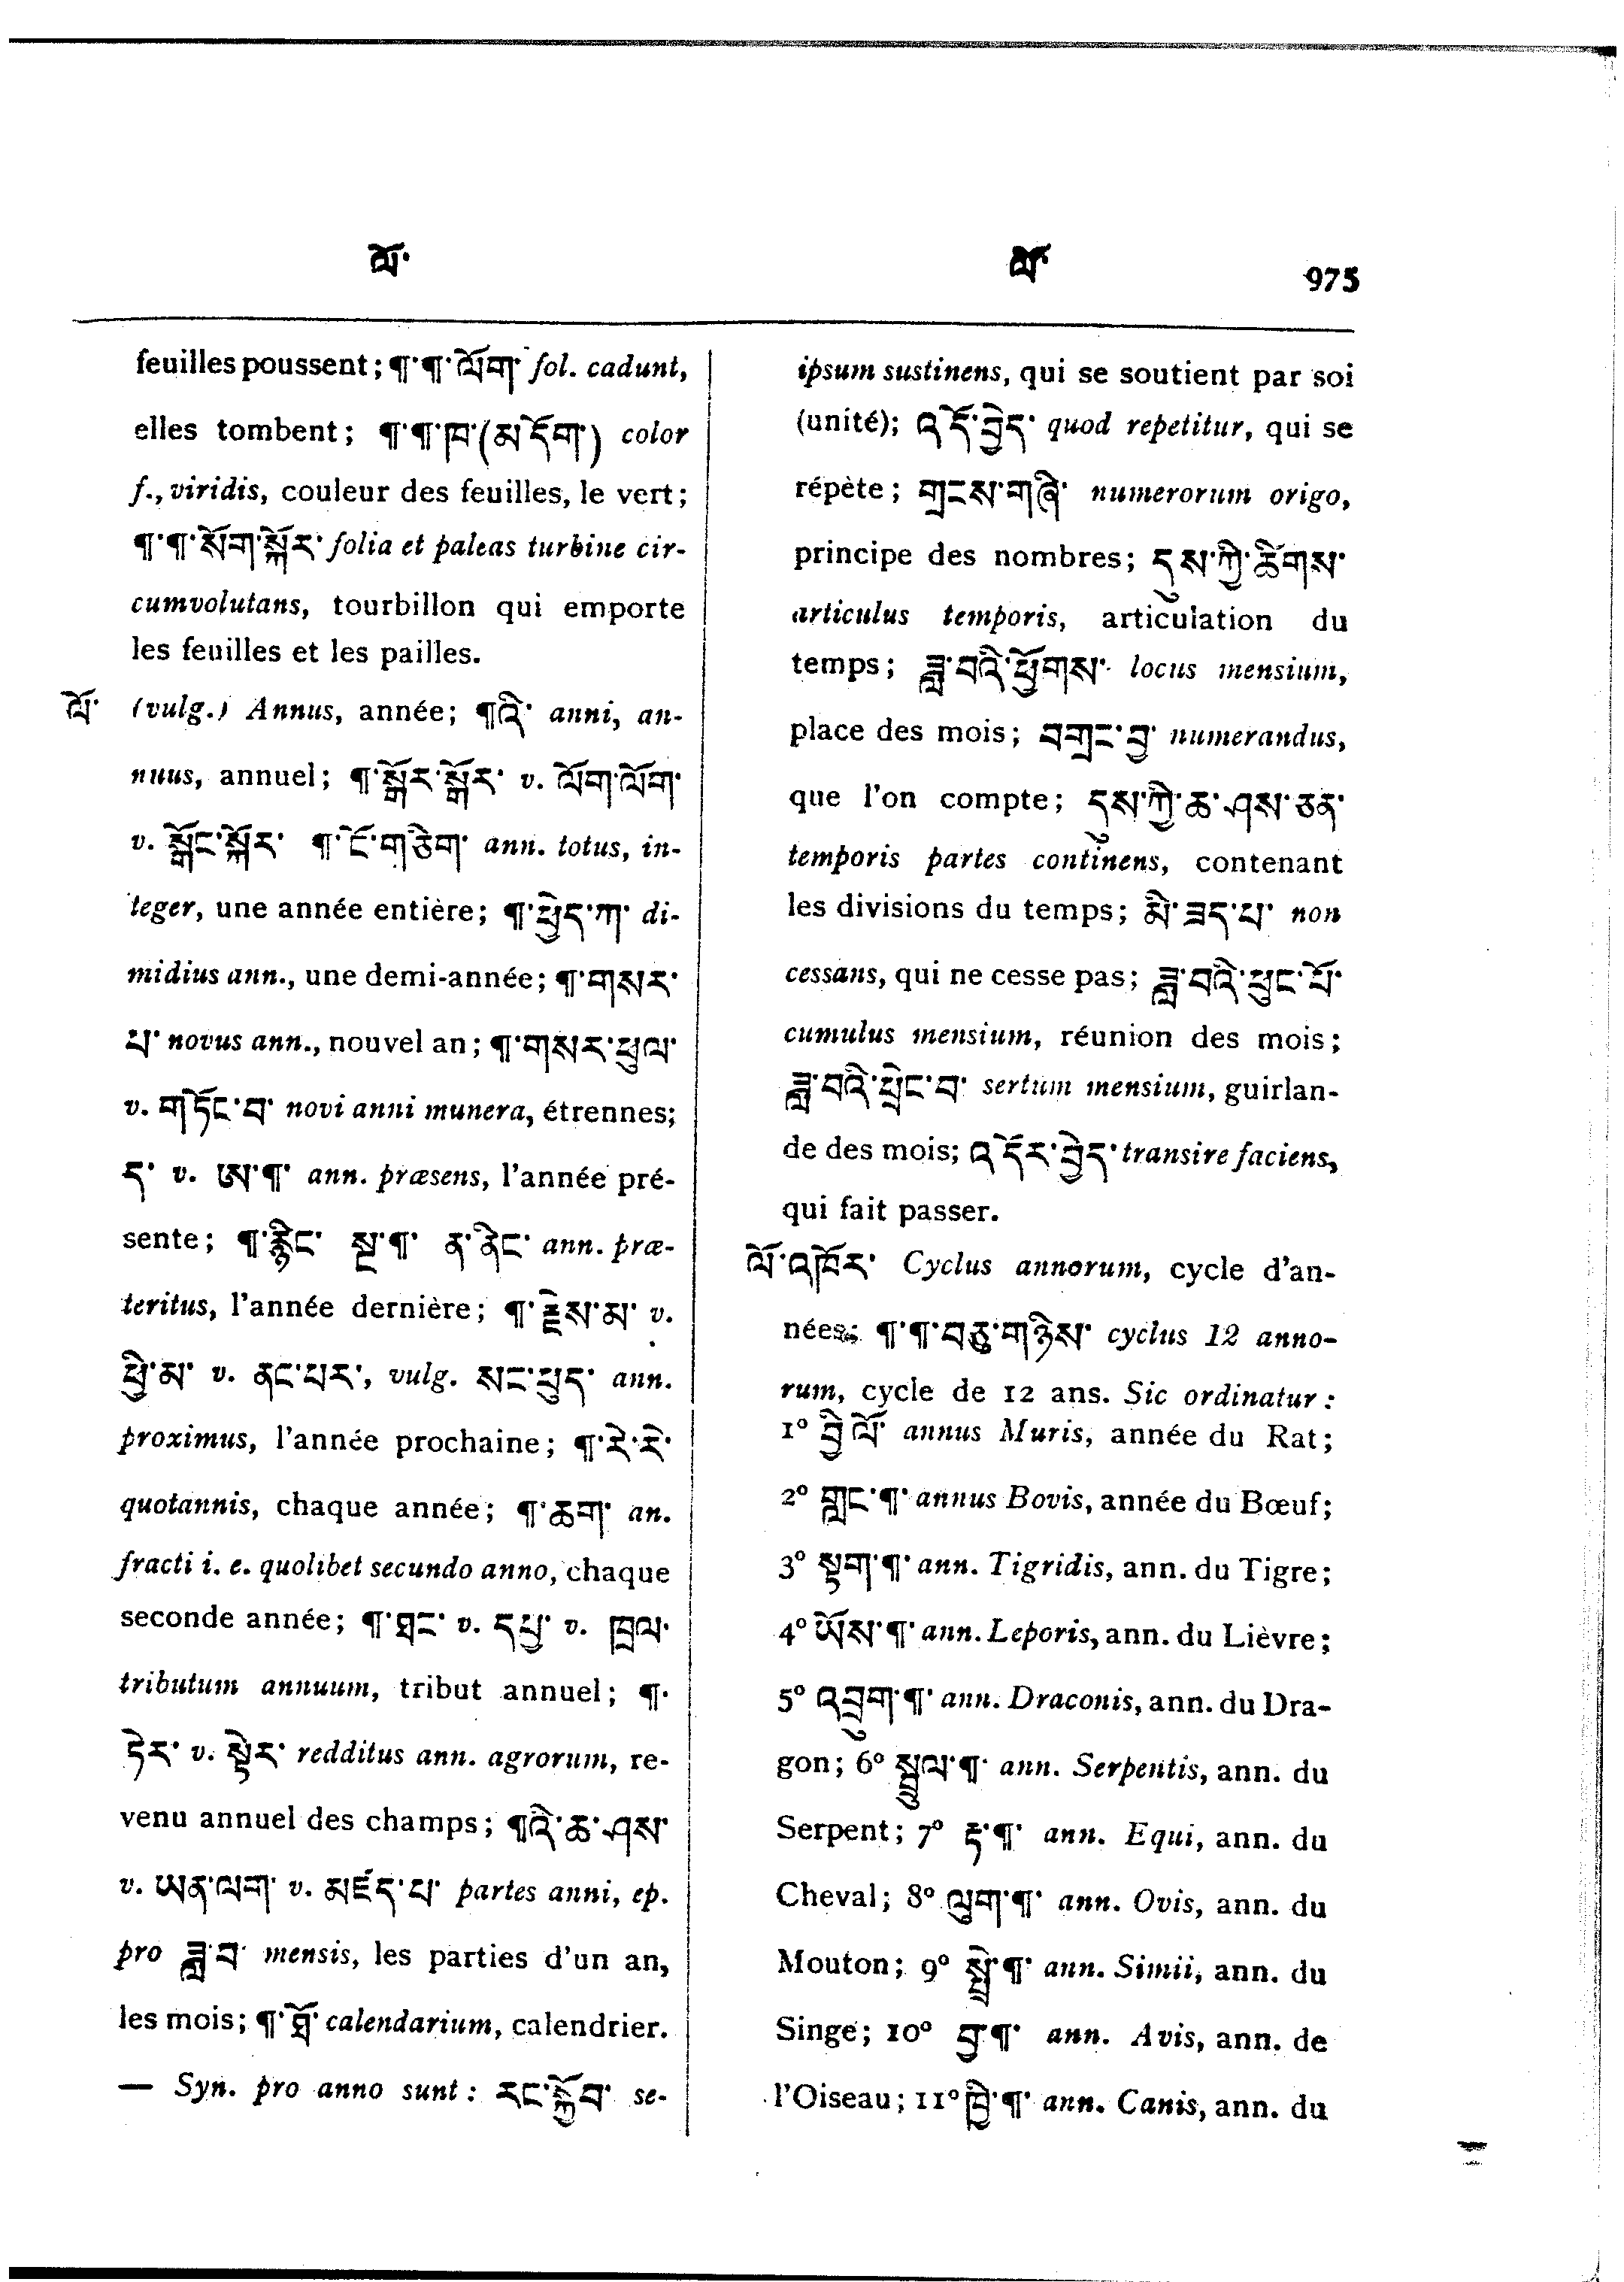 ལོ་
ལོ་
975
feuilles poussent; ¶་¶་ལོག་ fol. cadunt,
elles tombent; ¶་¶་ཁ་(མདོག་) color
f., viridis, couleur des feuilles, le vert;
¶་¶་སོག་སྐོར་ folia et paleas turbine cir-
cumvolutans, tourbillon qui emporte
les feuilles et les pailles.
ལོ་ (vulg.) Annus, année; ¶འི་ anni, an-
nuus, annuel; ¶་སྒོར་སྒོར་ v. ལོག་ལོག་
v. སྒོང་སྐོར་ ¶་ངོ་གཅིག་ ann. totus, in-
teger, une année entière; ¶་ཕྱེད་ཀ་ di-
midius ann., une demi-année; ¶་གསར་
པ་ novus ann., nouvel an; ¶་གསར་ཕུལ་
v. གཏོང་བ་ novi anni munera, étrennes;
ད་ v. ཨ་¶་ ann. præsens, l'année pré-
sente; ¶་རྙིང་ སྔ་¶་ ན་ནིང་ ann. præ-
teritus, l'année dernière; ¶་རྗེས་མ་ v.
ཕྱི་མ་ v. ནང་པར་, vulg. སང་ཕུད་ ann.
proximus, l'année prochaine; ¶་རེ་རེ་
quotannis, chaque année; ¶་ཆག་ an.
fracti i. e. quolibet secundo anno, chaque
seconde année; ¶་ཐང་ v. དཔྱ་ v. ཁྲལ་
tributum annuum, tribut annuel; ¶་
ཏེར་ v. སྟེར་ redditus ann. agrorum, re-
venu annuel des champs; ¶འི་ཆ་ཤས་
v. ཡན་ལག་ v. མཛོད་པ་ partes anni, ep.
pro ཟླ་བ་ mensis, les parties d'un an,
les mois; ¶་ཐོ་ calendarium, calendrier.
— Syn. pro anno sunt: རང་སྐྱོབ་ se-
ipsum sustinens, qui se soutient par soi
(unité); འདོ་བྱེད་ quod repetitur, qui se
répète; གྲངས་གཞི་ numerorum origo,
principe des nombres; དུས་ཀྱི་ཚིགས་
articulus temporis, articulation du
temps; ཟླ་བའི་ཕྱོགས་ locus mensium,
place des mois; བགྲང་བྱ་ numerandus,
que l'on compte; དུས་ཀྱི་ཆ་ཤས་ཅན་
temporis partes continens, contenant
les divisions du temps; མི་ཟད་པ་ non
cessans, qui ne cesse pas; ཟླ་བའི་ཕུང་པོ་
cumulus mensium, réunion des mois;
ཟླ་བའི་ཕྲེང་བ་ sertum mensium, guirlan-
de des mois; འདོར་བྱེད་ transire faciens,
qui fait passer.
ལོ་འཁོར་ Cyclus annorum, cycle d'an-
nées; ¶་¶་བཅུ་གཉིས་ cyclus 12 anno-
rum, cycle de 12 ans. Sic ordinatur:
1° བྱི་ལོ་ annus Muris, année du Rat;
2° གླང་¶་ annus Bovis, année du Bœuf;
3° སྟག་¶་ ann. Tigridis, ann. du Tigre;
4° ཡོས་¶་ ann. Leporis, ann. du Lièvre;
5° འབྲུག་¶་ ann. Draconis, ann. du Dra-
gon; 6° སྦྲུལ་¶་ ann. Serpentis, ann. du
Serpent; 7° རྟ་¶་ ann. Equi, ann. du
Cheval; 8° ལུག་¶་ ann. Ovis, ann. du
Mouton; 9° སྤྲེ་¶་ ann. Simii, ann. du
Singe; 10° བྱ་¶་ ann. Avis, ann. de
l'Oiseau; 11° ཁྱི་¶་ ann. Canis, ann. du